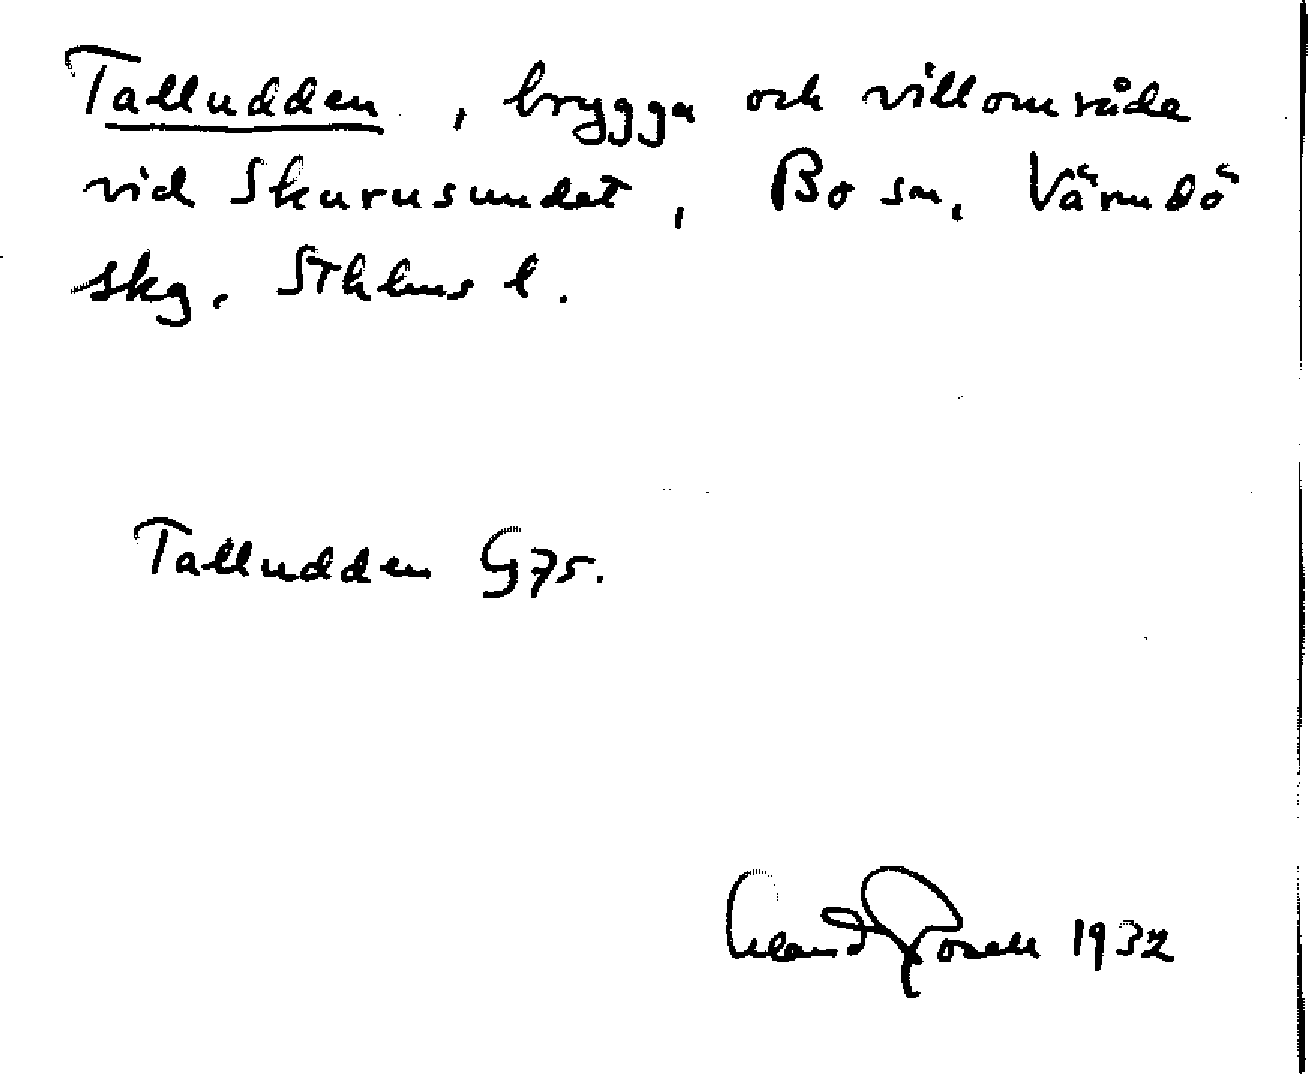 Talludden, brygga och villområde
vid Skurusundet, Bo sn, Värmdö
skg. Sthlms l.
Talludden G75.
1932